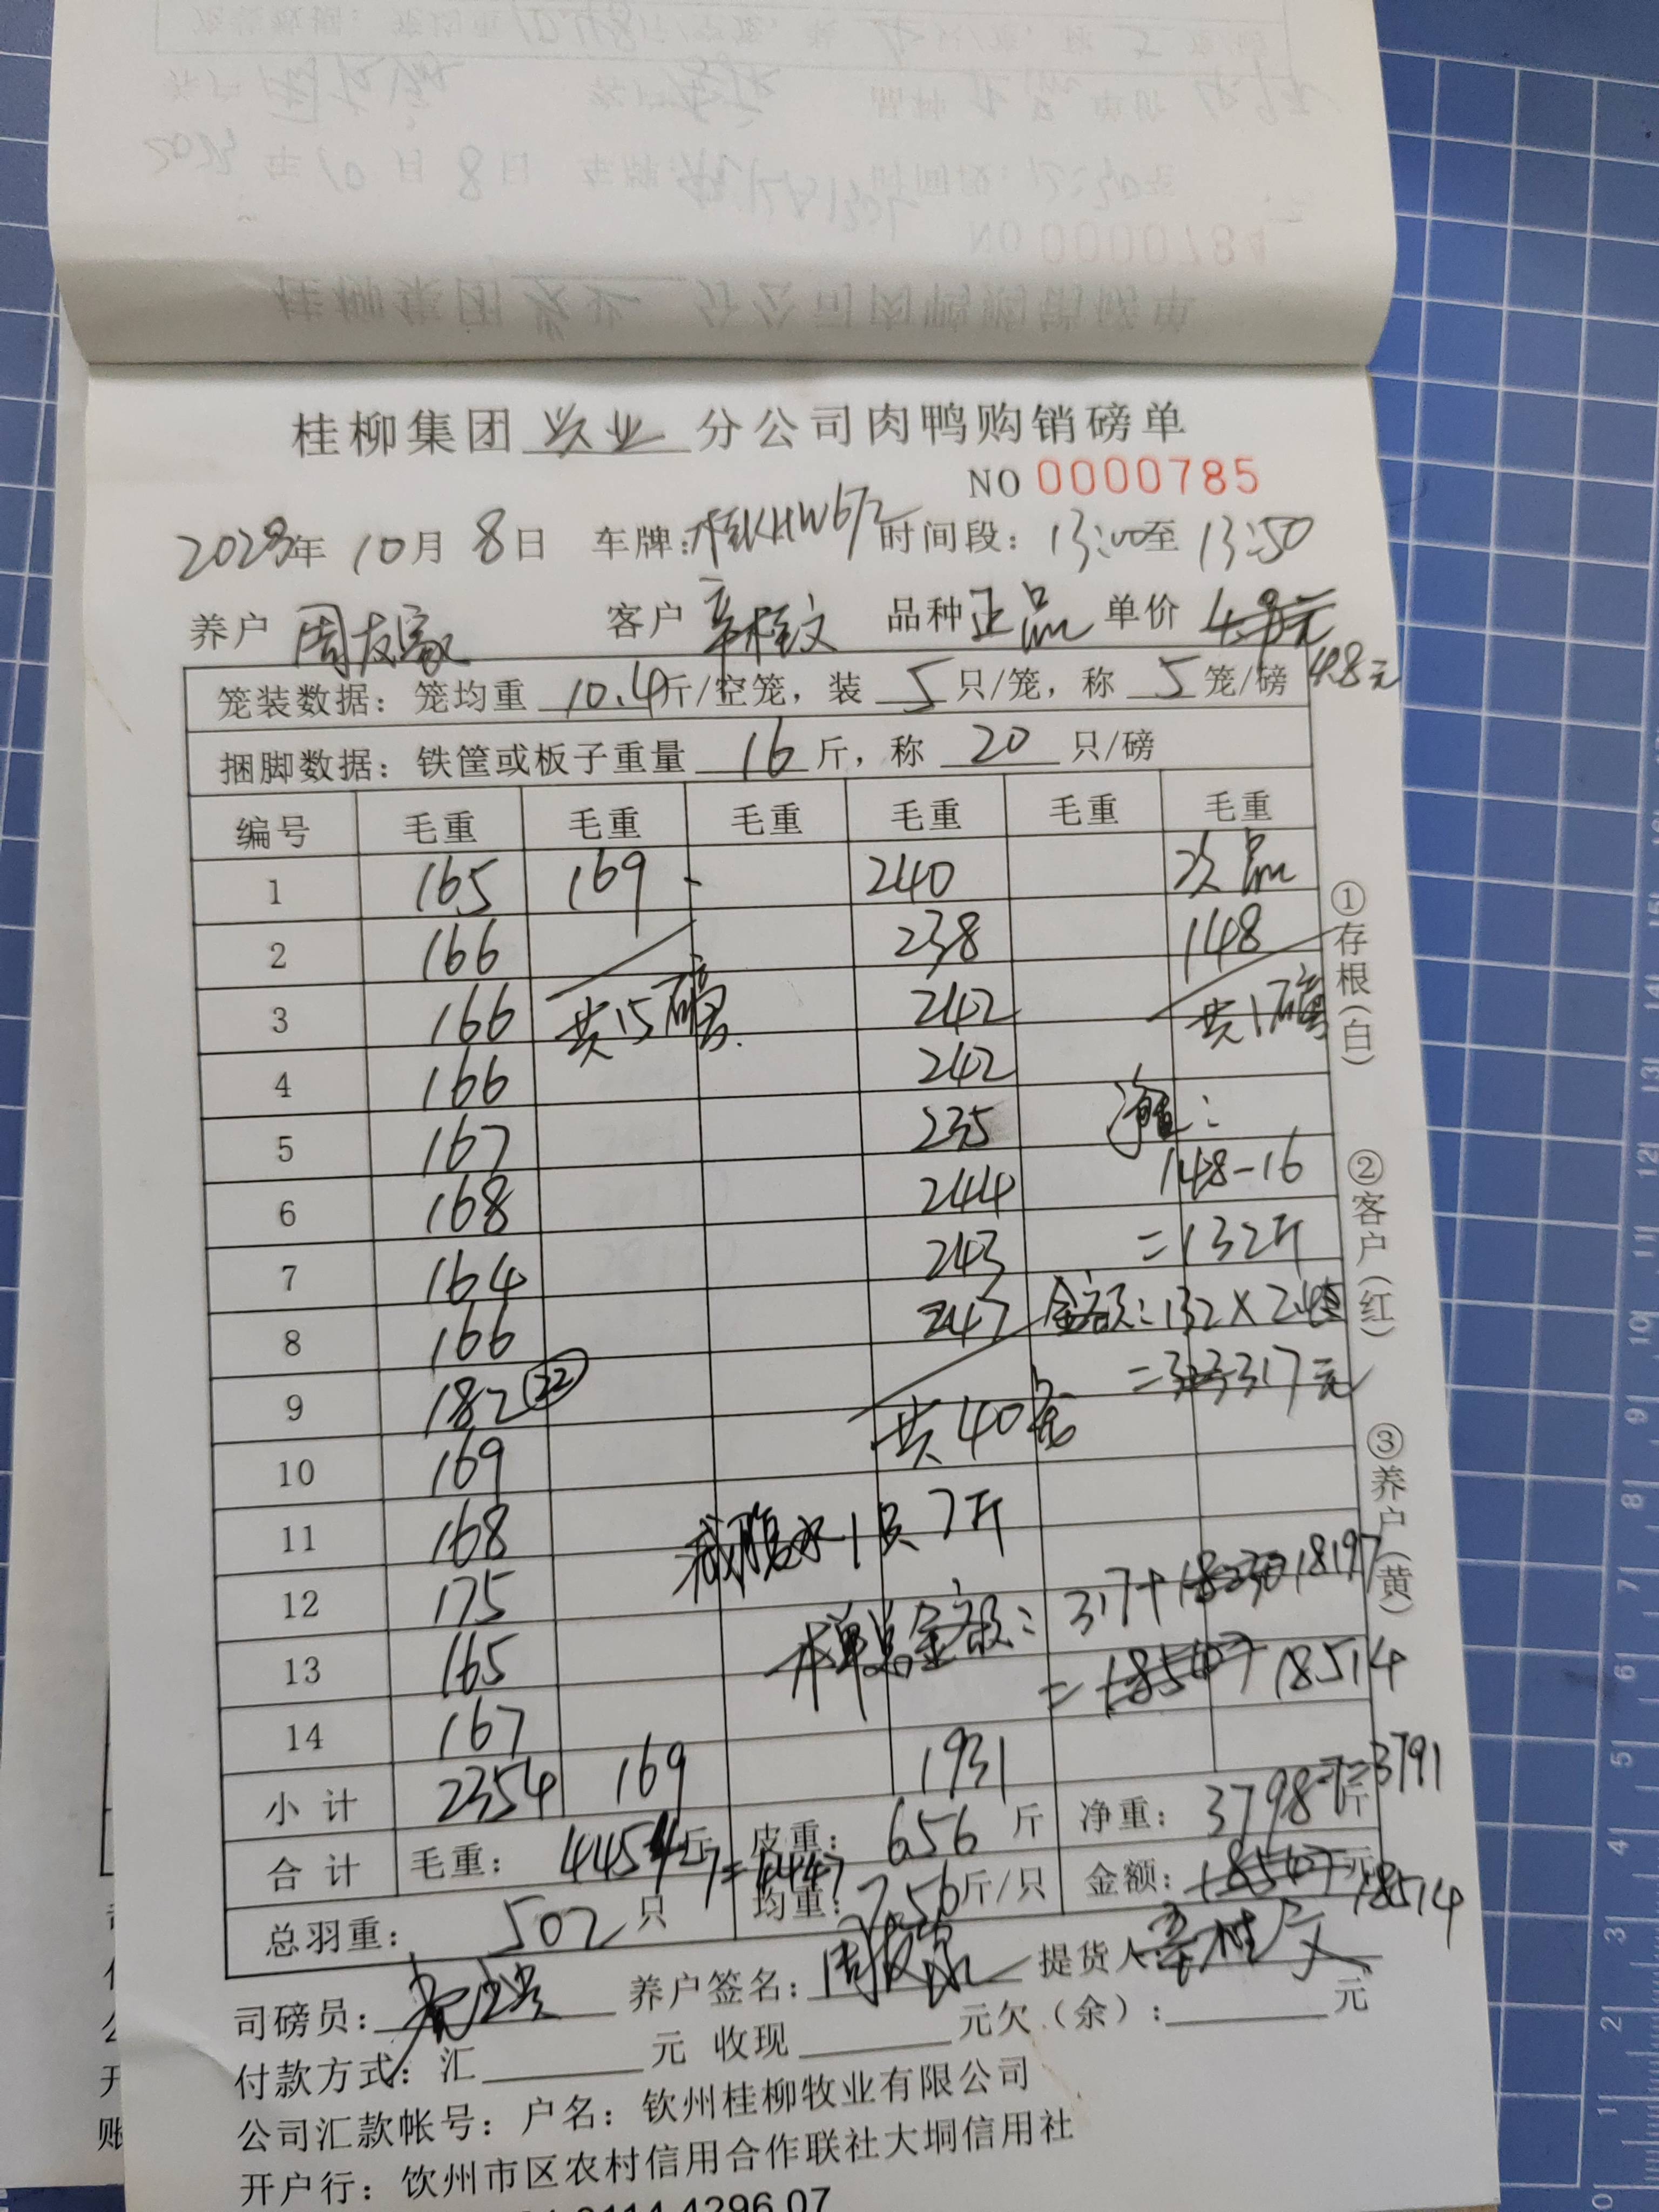 桂柳集团兴业分公司肉鸭购销磅单
NO 0000785
2023年10月8日 车牌:桂KHW672 时间段:13:00至13:50
养户 周友家 客户 辛桂文 品种 正品 单价 4.8元
笼装数据:笼均重10.4斤/空笼,装5只/笼,称5笼/磅
捆脚数据:铁筐或板子重量16斤,称20只/磅
编号 毛重 毛重 毛重 毛重 毛重 毛重
1 165 169 240 次品
2 166 238 148
3 166 共15磅 242 共1磅
4 166 242
5 167 235 净重:
6 168 244 148-16
7 164 243 =132斤
8 166 247 金额:132×2.4元
9 182 22 共40笼 =317元
10 169
11 168 减腹水1只7斤
12 175 317+18197
13 165 本单总金额: =18514
14 167
小计 2354 169 1931
合计 毛重:4454斤-7=4447 皮重:656斤 净重:3798-7斤=3791
总羽重:502只 均重:7.56斤/只 金额:18507元 18514
司磅员: 养户签名:周友家 提货人 辛桂文
付款方式:汇 元 收现 元欠(余): 元
公司汇款帐号:户名:钦州桂柳牧业有限公司
开户行:钦州市区农村信用合作联社大垌信用社
①存根(白) ②客户(红) ③养户(黄)